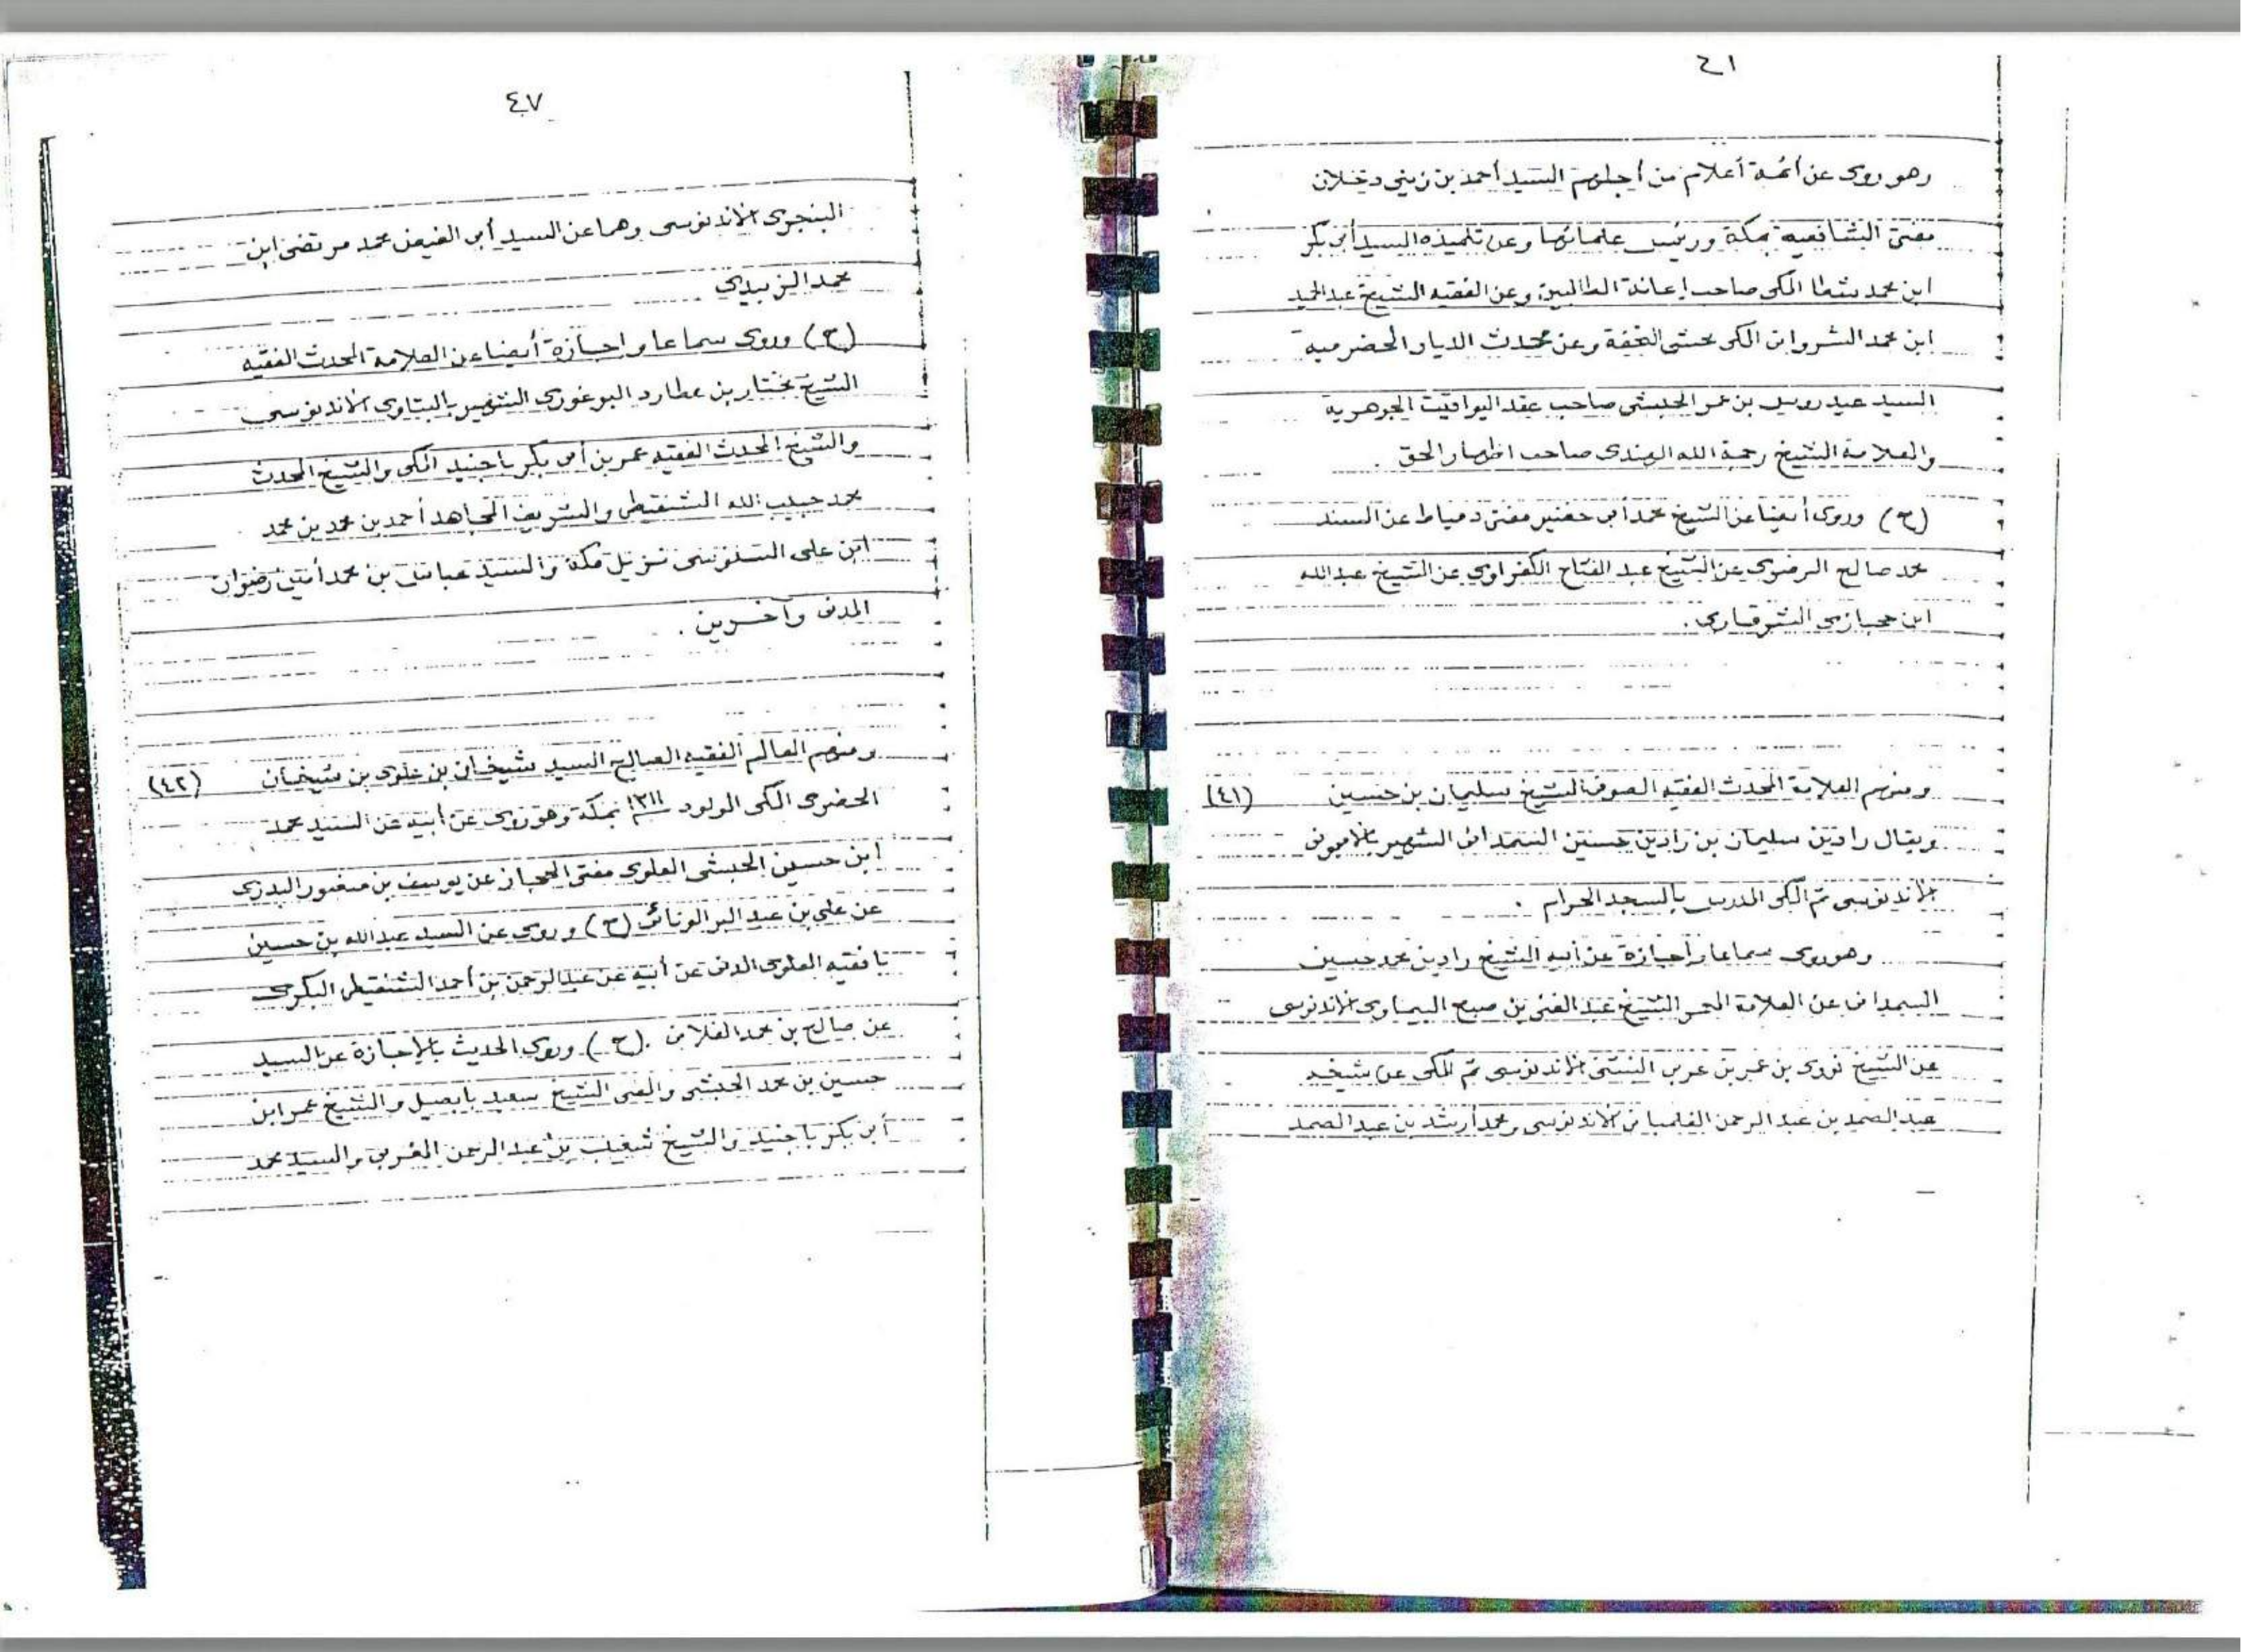 ٤٦
وهو روى عن أئمة أعلام من أجلهم السيد أحمد بن زيني دحلان
مفتى الشافعية بمكة ورئيس علمائها وعن تلميذه السيد أبى بكر
ابن محمد شطا المكى صاحب إعانة الطالبين وعن الفقيه الشيخ عبد الحميد
ابن محمد الشروانى المكى محشى التحفة وعن محدث الديار الحضرمية
السيد عيدروس بن عمر الحبشى صاحب عقد اليواقيت الجوهرية
والعلامة الشيخ رحمة الله الهندى صاحب اظهار الحق .
(ح) وروى أيضا عن الشيخ محمد أبى خضير مفتى دمياط عن السند
محمد صالح الرضوى عن الشيخ عبد الفتاح الكفراوي عن الشيخ عبد الله
ابن حجازى الشرقاوى .
ومنهم العلامة المحدث الفقيه الصوفى الشيخ سليمان بن حسين (٤١)
ويقال رادين سليمان بن رادين حسين السمدانى الشهير بالامبونى
الاندنوسى ثم المكى المدرس بالمسجد الحرام .
وهو روى سماعا واجازة عن أبيه الشيخ رادين محمد حسين
السمدانى عن العلامة المعمر الشيخ عبد الغنى بن صبح البيماوى الاندنوسى
عن الشيخ نووى بن عمر بن عربى البنتنى الاندنوسى ثم المكى عن شيخه
عبد الصمد بن عبد الرحمن الفلمبانى الاندنوسى ومحمد أرشد بن عبد الصمد
٤٧
البنجرى الاندنوسى وهما عن السيد أبى الفيض محمد مرتضى ابن
محمد الزبيدي
(ح) وروى سماعا واجازة أيضا عن العلامة المحدث الفقيه
الشيخ مختار بن عطارد البوغورى الشهير بالبتاوى الاندنوسى
والشيخ المحدث الفقيه عمر بن أبى بكر باجنيد المكى والشيخ المحدث
محمد حبيب الله الشنقيطى والشريف المجاهد أحمد بن محمد بن محمد
ابن على السنوسى نزيل مكة والسيد عباس بن محمد أمين رضوان
المدنى وآخرين .
ومنهم العالم الفقيه الصالح السيد شيخان بن علوى بن شيخان (٤٢)
الحضرمى المكى المولود ١٣١١ بمكة وهو روى عن أبيه عن السيد محمد
ابن حسين الحبشى العلوى مفتى الحجاز عن يوسف بن منصور البدرى
عن على بن عبد البر الونائى (ح) وروى عن السيد عبد الله بن حسين
بافقيه العلوى المدنى عن أبيه عن عبد الرحمن بن أحمد الشنقيطى البكرى
عن صالح بن محمد الفلانى . (ح) وروى الحديث بالإجازة عن السيد
حسين بن محمد الحبشى والمفتى الشيخ سعيد بابصيل والشيخ عمر ابن
أبى بكر باجنيد والشيخ شعيب بن عبد الرحمن المغربى والسيد محمد